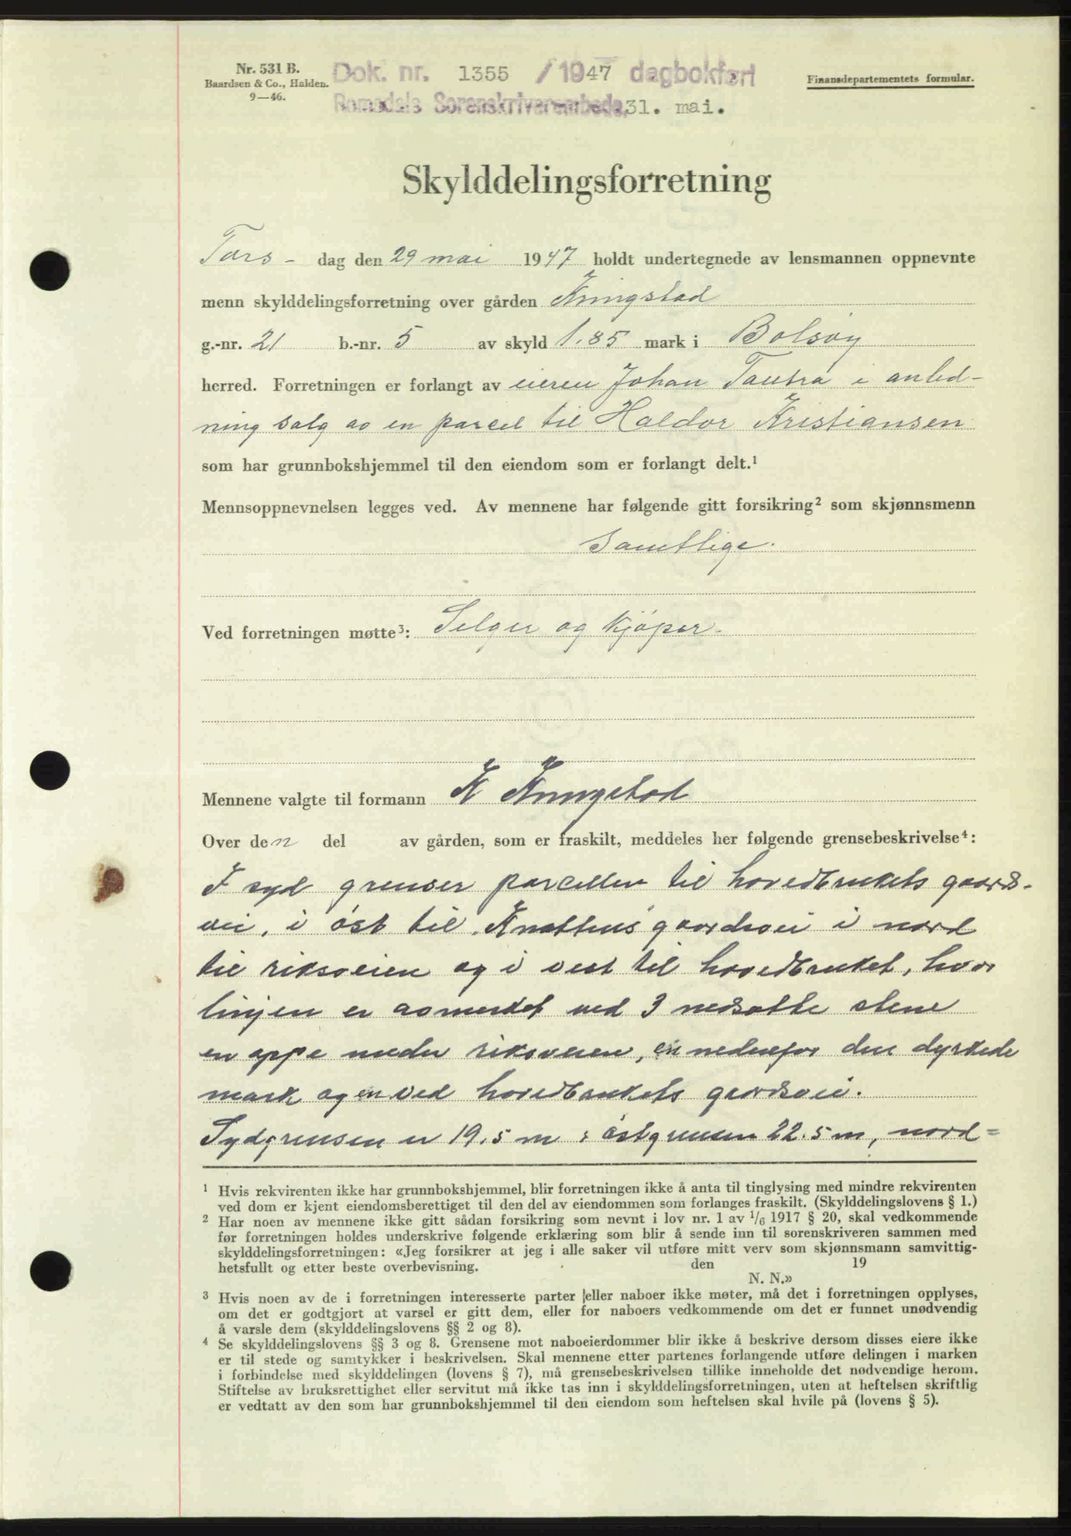 Nr. 531 B.
Baardsen & Co., Halden.
9—46.
Dok. nr. 1355 / 1947 dagbokført
Romsdals Sorenskriverembede 31. mai.
Finansdepartementets formular.
Skylddelingsforretning
Tors- dag den 29 mai 1947 holdt undertegnede av lensmannen oppnevnte
menn skylddelingsforretning over gården Kringstad
g.-nr. 21 b.-nr. 5 av skyld 1.85 mark i Bolsøy
herred. Forretningen er forlangt av eieren Johan Tautra i anled-
ning salg av en parcel til Haldor Kristiansen
som har grunnbokshjemmel til den eiendom som er forlangt delt.¹
Mennsoppnevnelsen legges ved. Av mennene har følgende gitt forsikring² som skjønnsmenn
Samtlige.
Ved forretningen møtte³: Selger og kjöper.
Mennene valgte til formann K Kringstad
Over den del av gården, som er fraskilt, meddeles her følgende grensebeskrivelse⁴:
I syd grenser parcellen til hovedbrukets gaards-
vei, i öst til gaardsvei i nord
til riksveien og i vest til hovedbruket, hvor
linjen er avmerket ved 3 nedsatte stene
en oppe under riksveien, en nedenfor den dyrkede
mark og en ved hovedbrukets gaardsvei.
Sydgrensen er 19.5 m, östgrensen 22.5 m, nord=
¹ Hvis rekvirenten ikke har grunnbokshjemmel, blir forretningen ikke å anta til tinglysing med mindre rekvirenten
ved dom er kjent eiendomsberettiget til den del av eiendommen som forlanges fraskilt. (Skylddelingslovens § 1.)
² Har noen av mennene ikke gitt sådan forsikring som nevnt i lov nr. 1 av 1/6 1917 § 20, skal vedkommende
før forretningen holdes underskrive følgende erklæring som blir å sende inn til sorenskriveren sammen med
skylddelingsforretningen: «Jeg forsikrer at jeg i alle saker vil utføre mitt verv som skjønnsmann samvittig-
hetsfullt og etter beste overbevisning. den 19
N. N.»
³ Hvis noen av de i forretningen interesserte parter eller naboer ikke møter, må det i forretningen opplyses,
om det er godtgjort at varsel er gitt dem, eller for naboers vedkommende om det er funnet unødvendig
å varsle dem (skylddelingslovens §§ 2 og 8).
⁴ Se skylddelingslovens §§ 3 og 8. Grensene mot naboeierdommer blir ikke å beskrive dersom disses eiere ikke
er til stede og samtykker i beskrivelsen. Skal mennene etter partenes forlangende utføre delingen i marken
i forbindelse med skylddelingen (lovens § 7), må grensebeskrivelsen tillike inneholde det nødvendige herom.
Stiftelse av bruksrettighet eller servitut må ikke tas inn i skylddelingsforretningen, uten at heftelsen skriftlig
er vedtatt av den som har grunnbokshjemmel til den eiendom som heftelsen skal hvile på (lovens § 5).